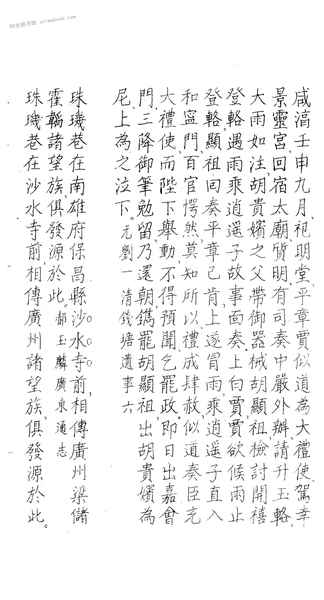 咸淳壬申九月祀明堂平章賈似道為大禮使駕幸
景靈宮回宿太廟質明有司奏中嚴外辦請升玉輅
大雨如注胡貴嬪之父帶御器械胡顯祖檢討開禧
登輅遇雨乘逍遥子故事面奏上白賈賈欲候雨止
登輅顯祖回奏平章已肯上遂冒雨乘逍遥子直入
和寧門百官愕然莫知所以禮成肆赦似道奏臣充
大禮使而陛下舉動不得預聞乞罷政即日出嘉會
門三降御筆勉留乃還朝鐫罷胡顯祖出胡貴嬪為
尼上為之泣下元劉一清錢塘遺事六
珠璣巷在南雄府保昌縣沙水寺前相傳廣州梁儲
霍韜諸望族俱發源於此郝玉麟廣東通志
珠璣巷在沙水寺前相傳廣州諸望族俱發源於此